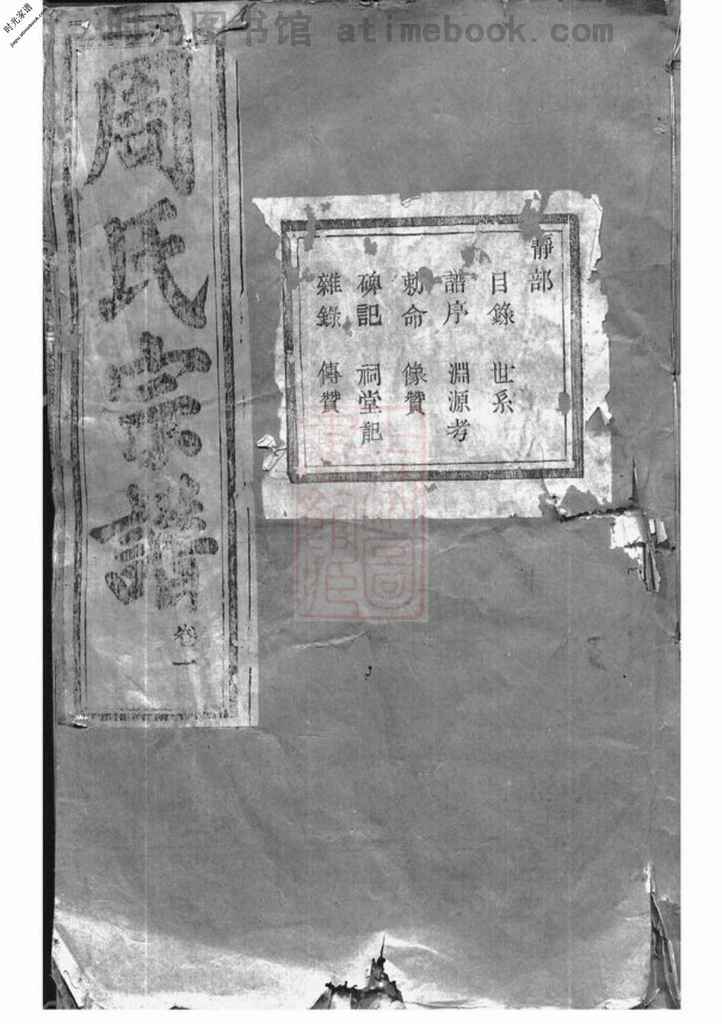 时光图书馆 atimebook.com
时光家谱
jiapu.atimebook.com
周氏宗譜
卷一
靜部
目錄 世系
譜序 淵源考
勅命 像贊
碑記 祠堂記
雜錄 傳贊